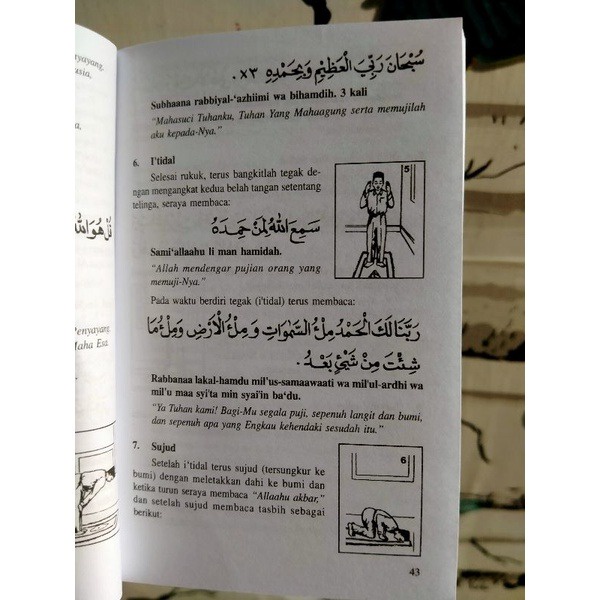 yayang,
usia,
a,
قُلْ هُوَ اللّٰهُ
Penyayang,
Maha Esa.
سُبْحَانَ رَبِّيَ الْعَظِيْمِ وَبِحَمْدِهِ ×٣.
Subhaana rabbiyal-‘azhiimi wa bihamdih. 3 kali
“Mahasuci Tuhanku, Tuhan Yang Mahaagung serta memujilah
aku kepada-Nya.”
6. I’tidal
Selesai rukuk, terus bangkitlah tegak de-
ngan mengangkat kedua belah tangan setentang
telinga, seraya membaca:
5
سَمِعَ اللّٰهُ لِمَنْ حَمِدَهُ
Sami‘allaahu li man hamidah.
“Allah mendengar pujian orang yang
memuji-Nya.”
Pada waktu berdiri tegak (i’tidal) terus membaca:
رَبَّنَا لَكَ الْحَمْدُ مِلْءُ السَّمٰوَاتِ وَمِلْءُ الْأَرْضِ وَمِلْءُ مَا
شِئْتَ مِنْ شَيْئٍ بَعْدُ.
Rabbanaa lakal-hamdu mil’us-samaawaati wa mil’ul-ardhi wa
mil’u maa syi’ta min syai’in ba‘du.
“Ya Tuhan kami! Bagi-Mu segala puji, sepenuh langit dan bumi,
dan sepenuh apa yang Engkau kehendaki sesudah itu.”
7. Sujud
Setelah i’tidal terus sujud (tersungkur ke
bumi) dengan meletakkan dahi ke bumi dan
ketika turun seraya membaca “Allaahu akbar,”
dan setelah sujud membaca tasbih sebagai
berikut:
6
43